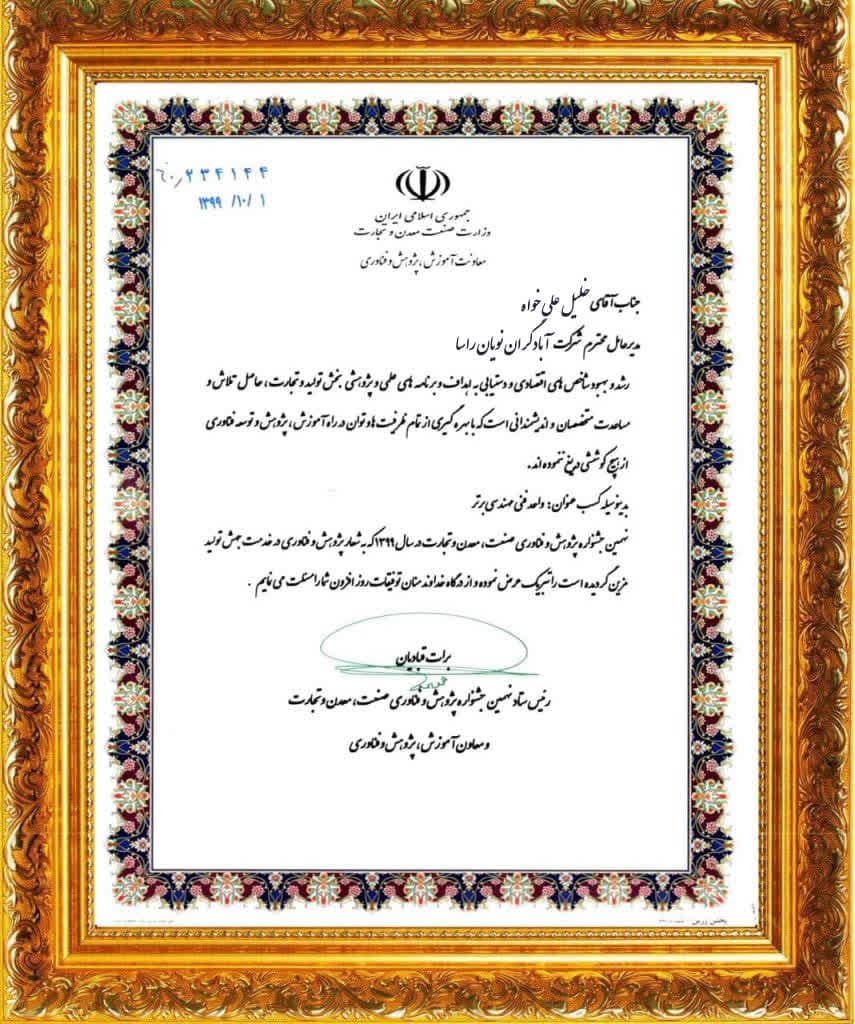 ۶۰/۲۳۴۱۴۴
۱۳۹۹/۱۰/۱
جمهوری اسلامی ایران
وزارت صنعت معدن و تجارت
معاونت آموزش، پژوهش و فناوری
جناب آقای خلیل علی خواه
مدیرعامل محترم شرکت آبادگران نویان راسا
رشد و بهبود شاخص های اقتصادی و دستیابی به اهداف و برنامه های علمی و پژوهشی بخش تولید و تجارت، حاصل تلاش و
مساعدت متخصصان و اندیشمندانی است که با بهره گیری از تمام ظرفیت ها و توان در راه آموزش، پژوهش و توسعه فناوری
از هیچ کوششی دریغ ننموده اند.
بدینوسیله کسب عنوان: واحد فنی مهندسی برتر
نهمین جشنواره پژوهش و فناوری صنعت، معدن و تجارت در سال ۱۳۹۹ که به شعار پژوهش و فناوری در خدمت جهش تولید
مزین گردیده است را تبریک عرض نموده و از درگاه خداوند منان توفیقات روز افزون شما را مسئلت می نمایم .
برات قبادیان
رئیس ستاد نهمین جشنواره پژوهش و فناوری صنعت، معدن و تجارت
و معاون آموزش، پژوهش و فناوری